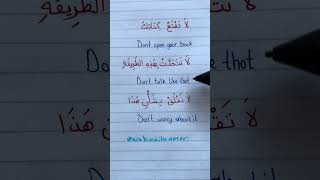 لَا تَفْتَحْ كِتَابَكَ
Don't open your book
لَا تَتَحَدَّثْ بِهَذِهِ الطَّرِيقَةِ
Don't talk like that
لَا تَقْلَقْ بِشَأْنِ هَذَا
Don't worry about it